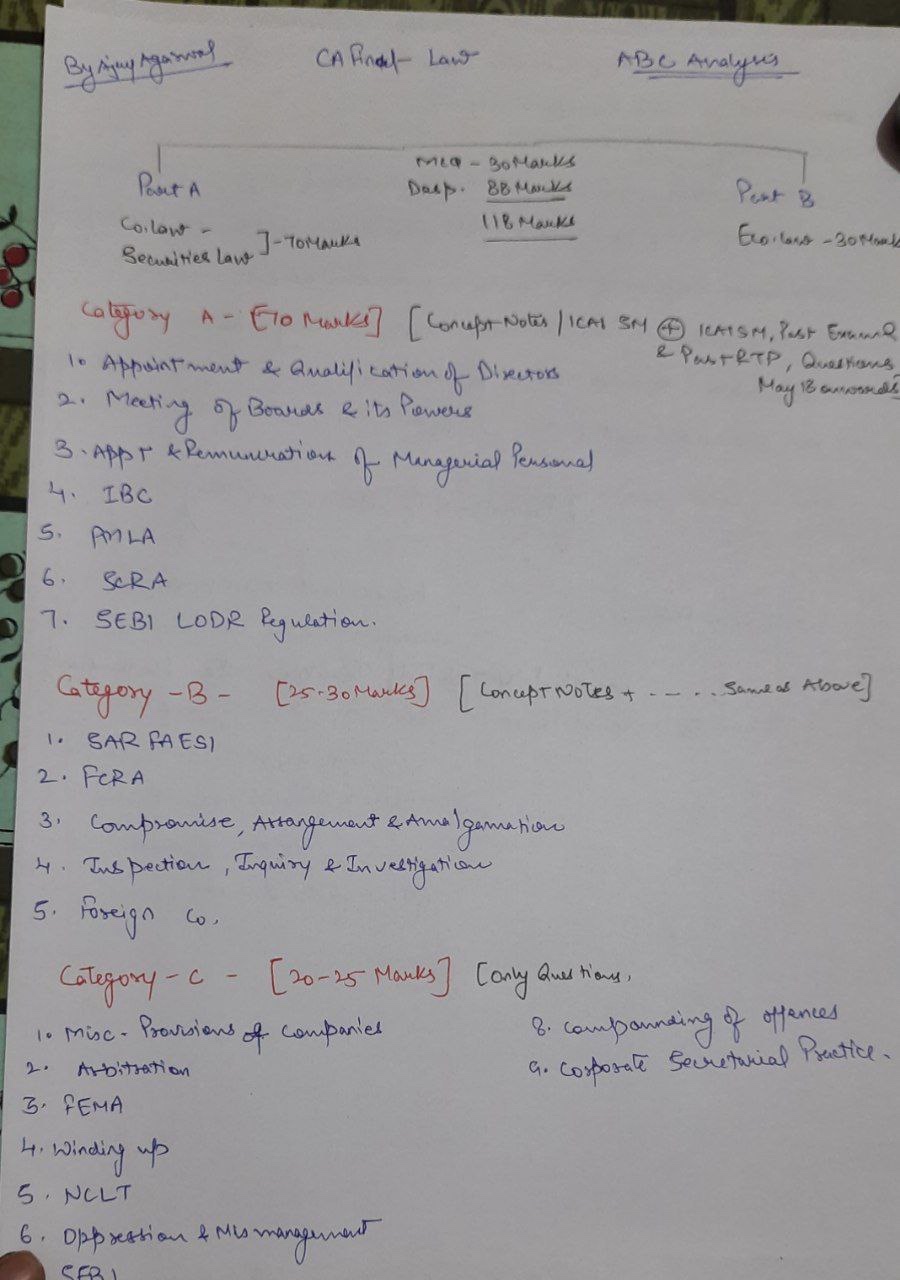 By Ajay Agarwal
CA Final - Law
ABC Analysis
MCQ - 30 Marks
Desp. 88 Marks
118 Marks
Part A
Co. Law -
Securities Law ] - 70 Marks
Part B
Eco. Law - 30 Mark
Category A - [70 Marks] [Concept Notes / ICAI SM ⊕ ICAI SM, Past Exam
& Past RTP, Questions
May 18 onwards]
1. Appointment & Qualification of Directors
2. Meeting of Boards & its Powers
3. Appt & Remuneration of Managerial Personal
4. IBC
5. PMLA
6. SCRA
7. SEBI LODR Regulation.
Category - B - [25-30 Marks] [Concept Notes + - - . . Same as Above]
1. SARFAESI
2. FCRA
3. Compromise, Arrangement & Amalgamation
4. Inspection, Inquiry & Investigation
5. Foreign Co.
Category - C - [20-25 Marks] [Only Questions,
1. Misc - Provisions of Companies
2. Arbitration
3. FEMA
4. Winding up
5. NCLT
6. Oppression & Mismanagement
SEBI
8. Compounding of offences
9. Corporate Secretarial Practice.